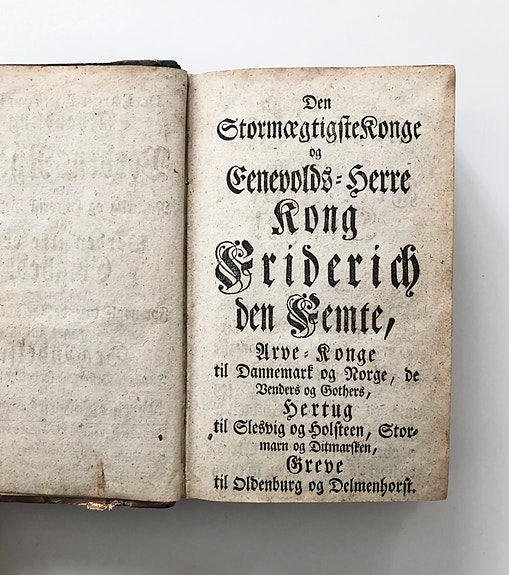 Den
Stormægtigste Konge
og
Eenevolds-Herre
Kong
Friderich
den Femte,
Arve-Konge
til Dannemark og Norge, de
Venders og Gothers,
Hertug
til Slesvig og Holsteen, Stor-
marn og Ditmarsken,
Greve
til Oldenburg og Delmenhorst.